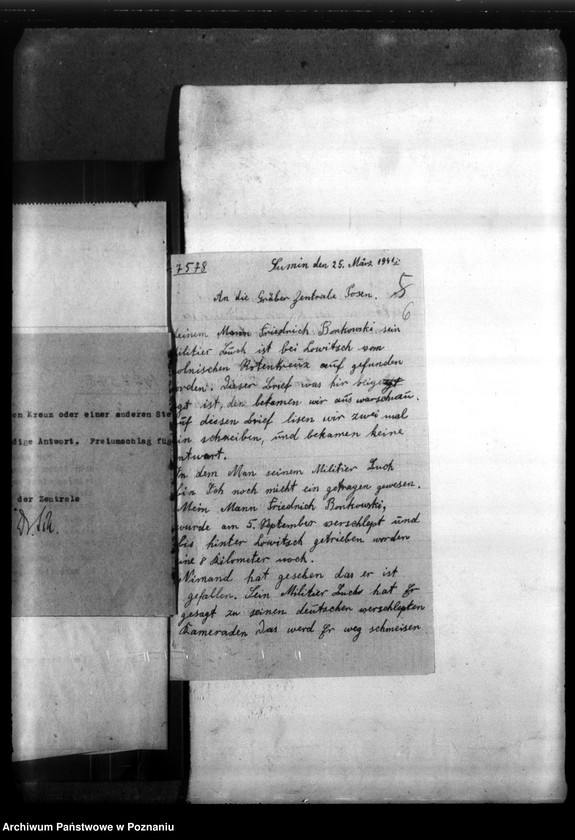 en Kreuz oder einer anderen Ste
dige Antwort. Freiumschlag fü
der Zentrale
7578
Sumin den 25. März 1941
An die Gräber Zentrale Posen.
5
6
einem Mann Friedrich Bonkowski sein
ilitier Buch ist bei Lowitsch vom
olnischen Rotenkreuz auf gefunden
orden. Dieser Brief was hir beigelegt
gt ist, den bekamen wir aus Warschau.
uf diesen Brief lisen wir zwei mal
in schreiben, und bekamen keine
ntwort.
In dem Man seinem Militier Buch
bin Ich noch nicht ein getragen gewesen.
Mein Mann Friedrich Bonkowski,
wurde am 5. September verschlept und
bis hinter Lowitsch getrieben worden
ine 8 Kilometer noch.
Nimand hat gesehen das er ist
gefallen. Sein Militier Buch hat Er
gesagt zu seinen deutschen verschlepten
Kameraden Das werd Er weg schmeisen
Archiwum Państwowe w Poznaniu